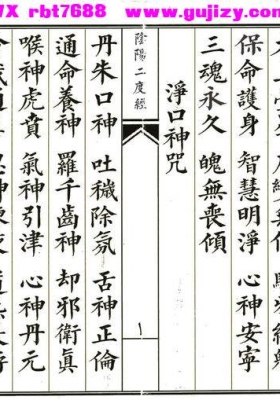 VX rbt7688 www.gujizy.com
保命護身 智慧明淨 心神安寧
三魂永久 魄無喪傾
淨口神咒
陰陽二度經 一
丹朱口神 吐穢除氛 舌神正倫
通命養神 羅千齒神 却邪衛眞
喉神虎賁 氣神引津 心神丹元